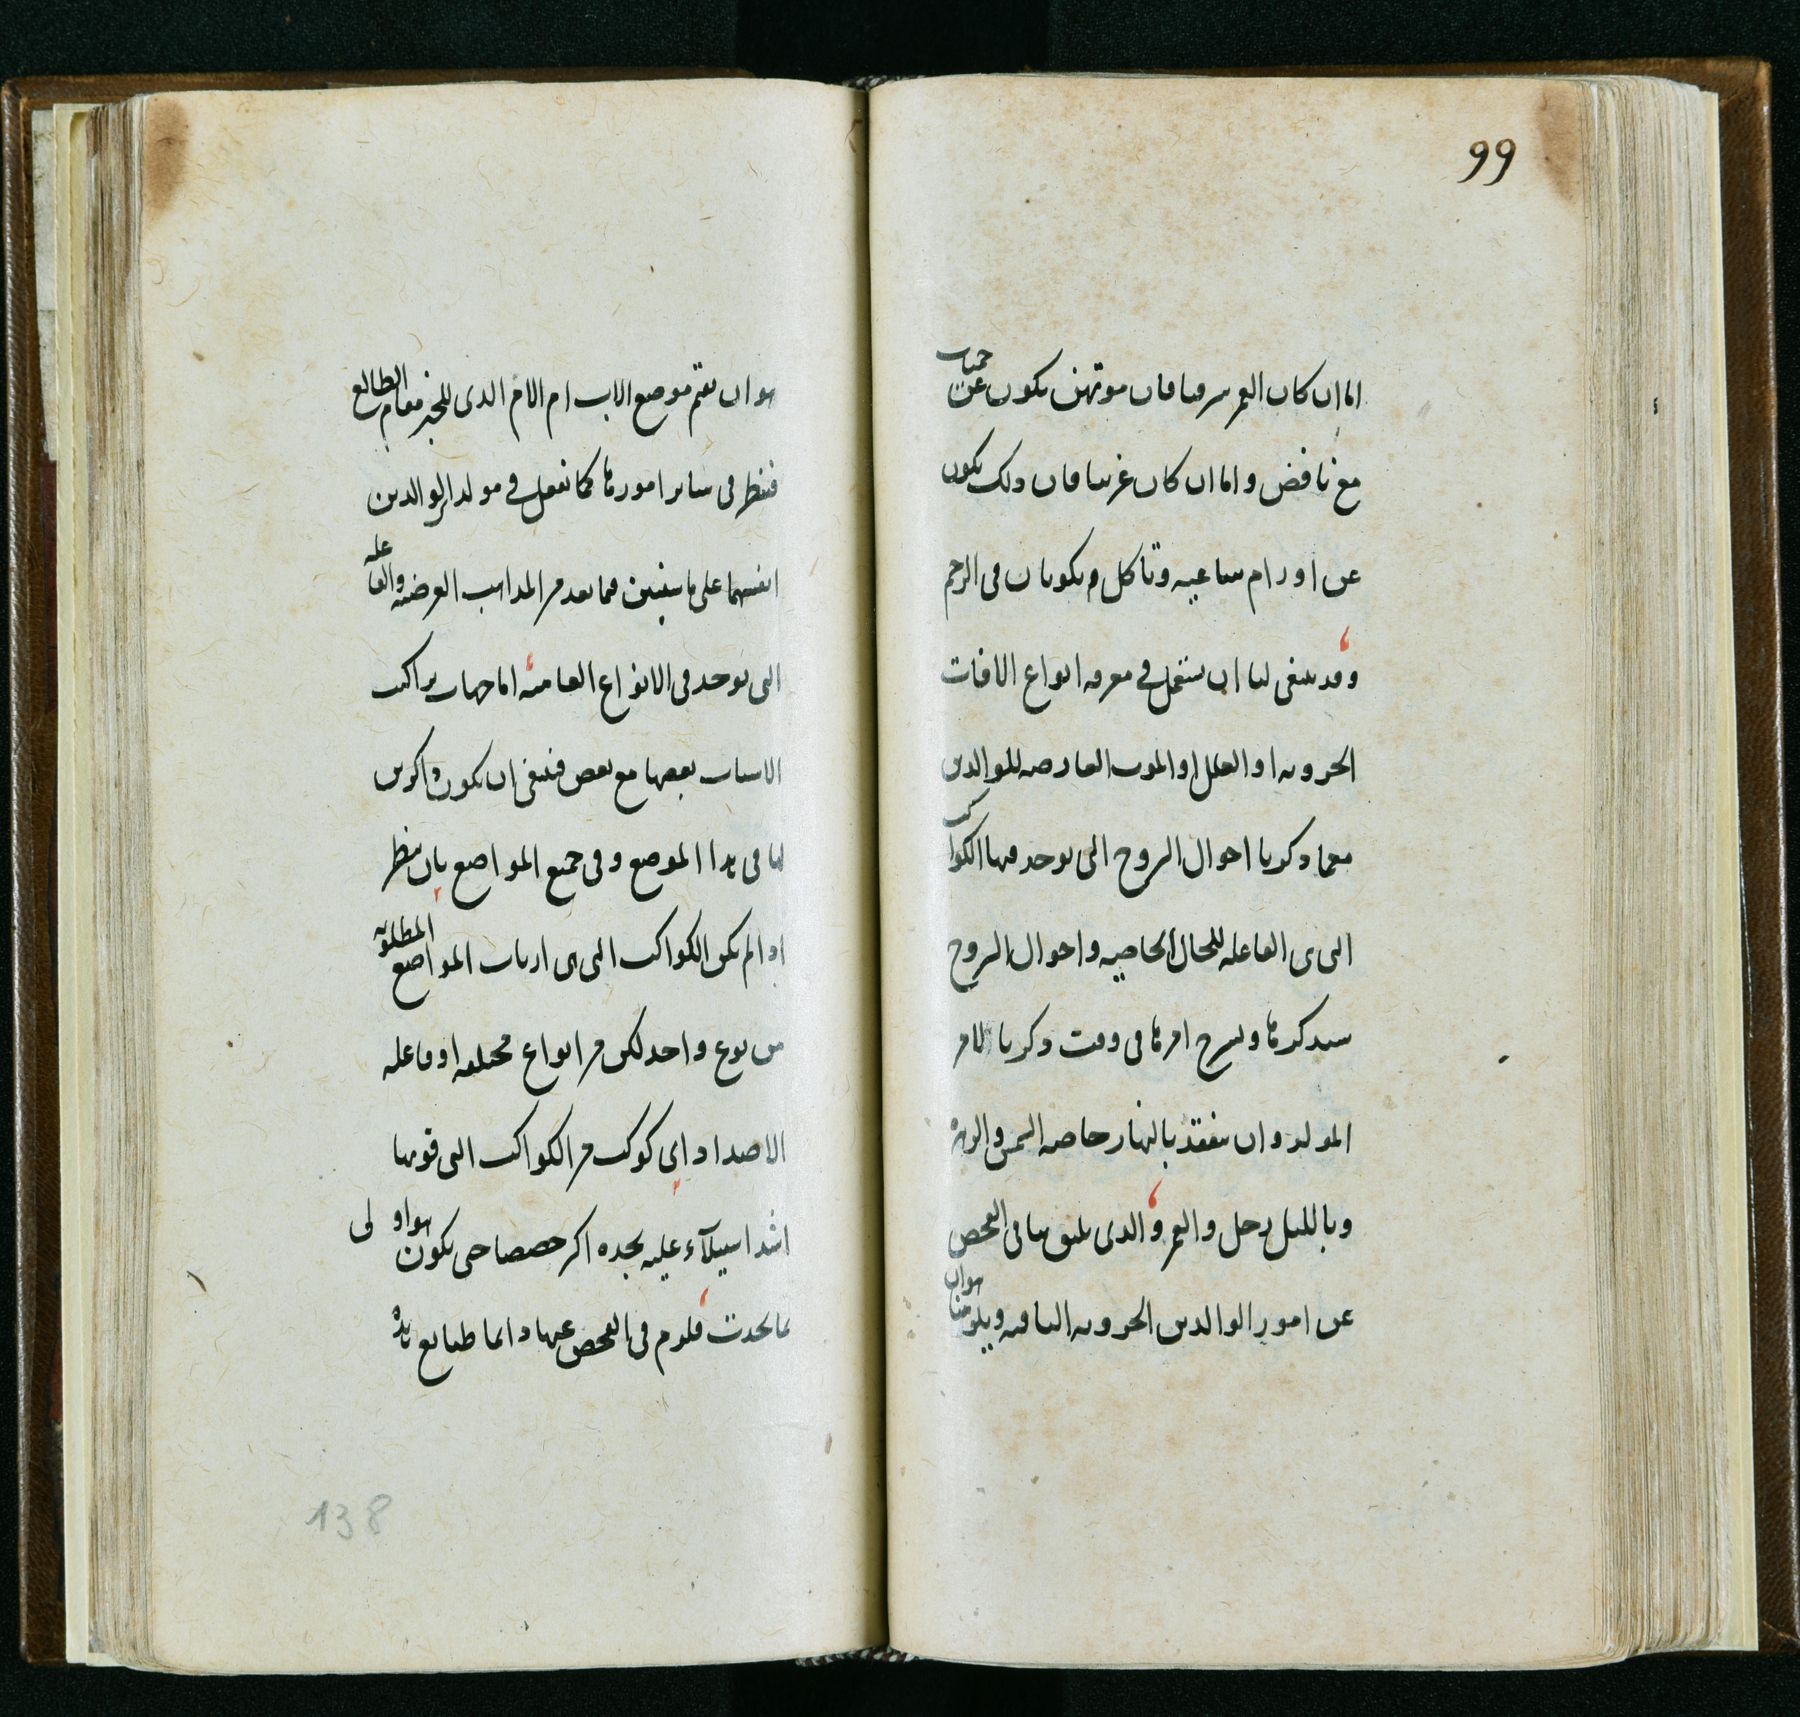 99
اما ان كان القمر شرقيا فان موتهن يكون عن حميات
مع نافض واما ان كان غربيا فان ذلك يكون
عن اورام ساعيه وتاكل يكونان فى الرحم
وقد ينبغى لنا ان نستعمل فى معرفه انواع الافات
الجزويه او العلل او الموت العارضه للوالدين
مع ما ذكرنا احوال البروج التى توجد فيها الكواكب
التى هى الفاعله للحال الخاصيه واحوال البروج
سنذكرها ونشرح امرها فى وقت ذكرنا لامر
المولد وان نتفقد بالنهار خاصه الشمس والزهره
وبالليل زحل والقمر والذى يليق بنا فى الفحص
عن امور الوالدين الجزويه الباقيه ويلزمنا هو ان
هو ان نقيم موضع الاب ام الام الذى للخير مقام الطالع
فننظر فى سائر امورها كما نفعل فى مولد الوالدين
انفسهما على ما سنبين فيما بعد من المذاهب العرضيه والفاعله
التى توجد فى الانواع العاميه اما جهات تراكيب
الاسباب بعضها مع بعض فينبغى ان تكون ذاكرين
لها فى هذا الموضع وفى جميع المواضع بان ننظر
اذا لم تكن الكواكب التى هى ارباب المواضع المطلوبه
من نوع واحد لكن من انواع مختلفه او فاعله
الاضداد اى كوكب من الكواكب التى قوتها
اشد استيلاء عليه نجده اكثر حصصا حتى يكون هو اولى
بما يحدث فيلزم فى الفحص عنها دائما طبايع هذه
138